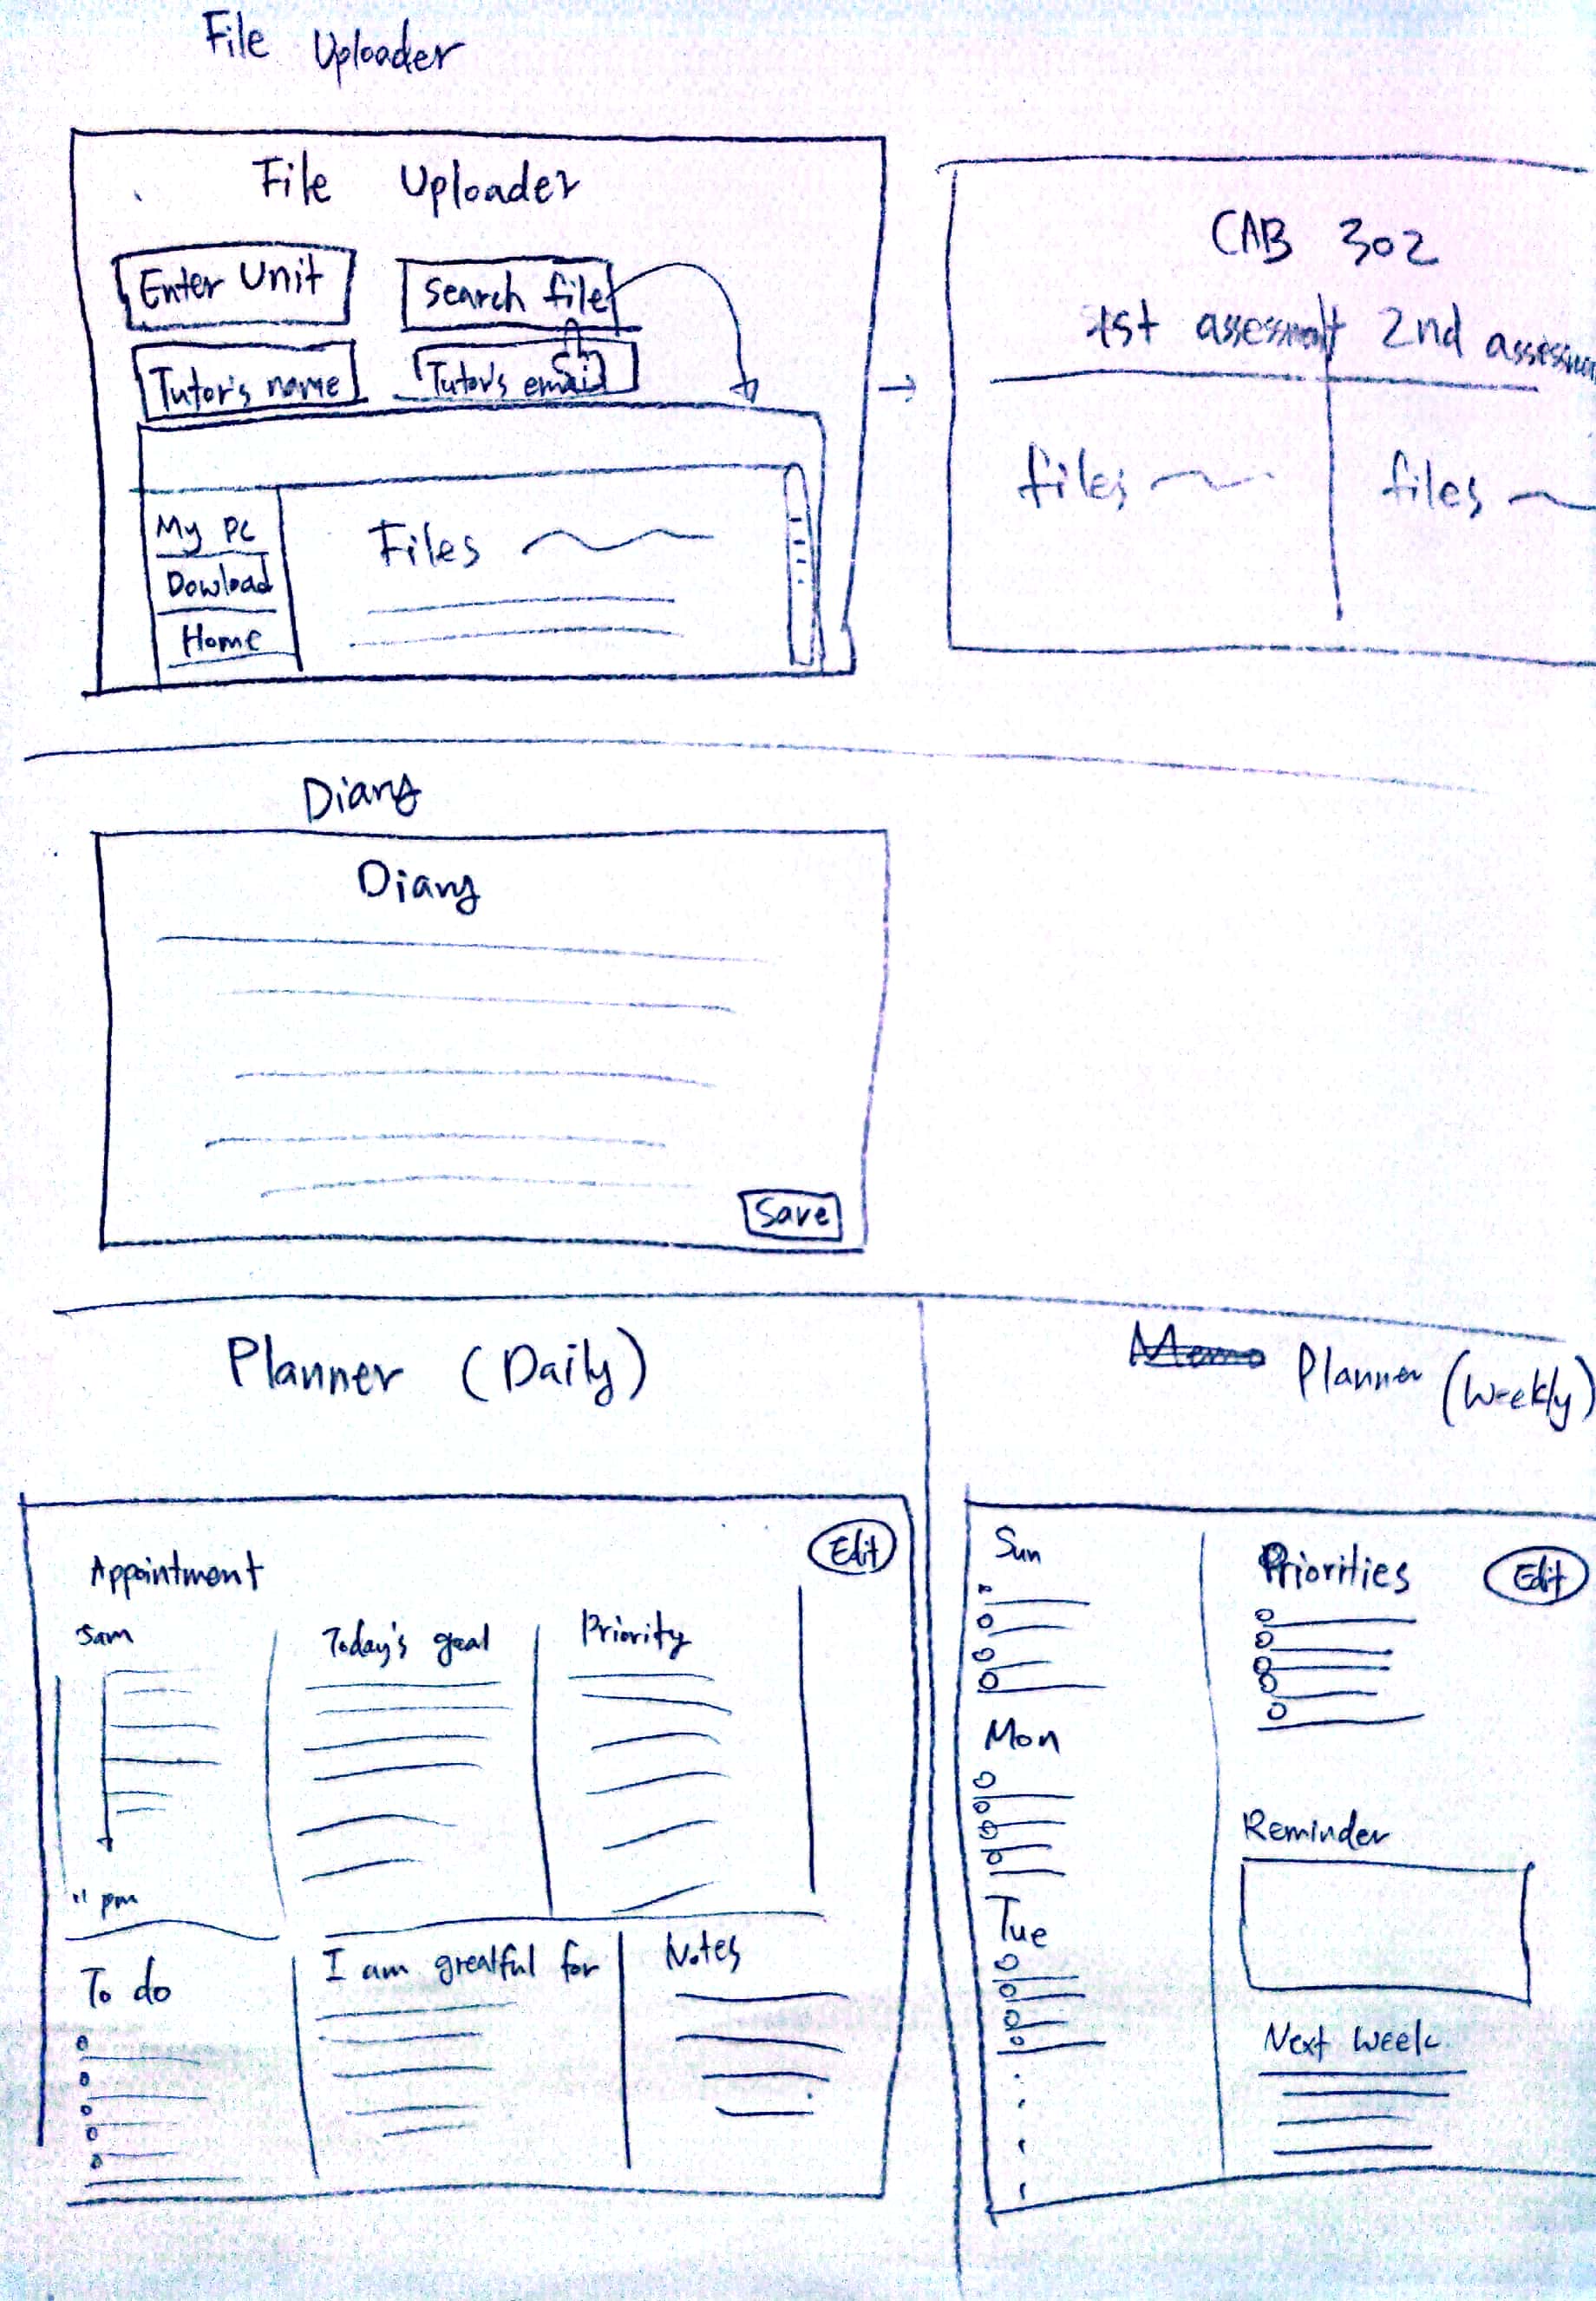 File Uploader
File Uploader
Enter Unit
Search file
Tutor's name
Tutor's email
My PC
Dowload
Home
Files
CAB 302
1st assessment
2nd
files
files
Diary
Diary
Save
Planner (Daily)
Edit
Appointment
5am
11 pm
Today's goal
Priority
To do
I am greatful for
Notes
Memo Planner (Weekly)
Sun
Mon
Tue
Priorities
Edit
Reminder
Next week